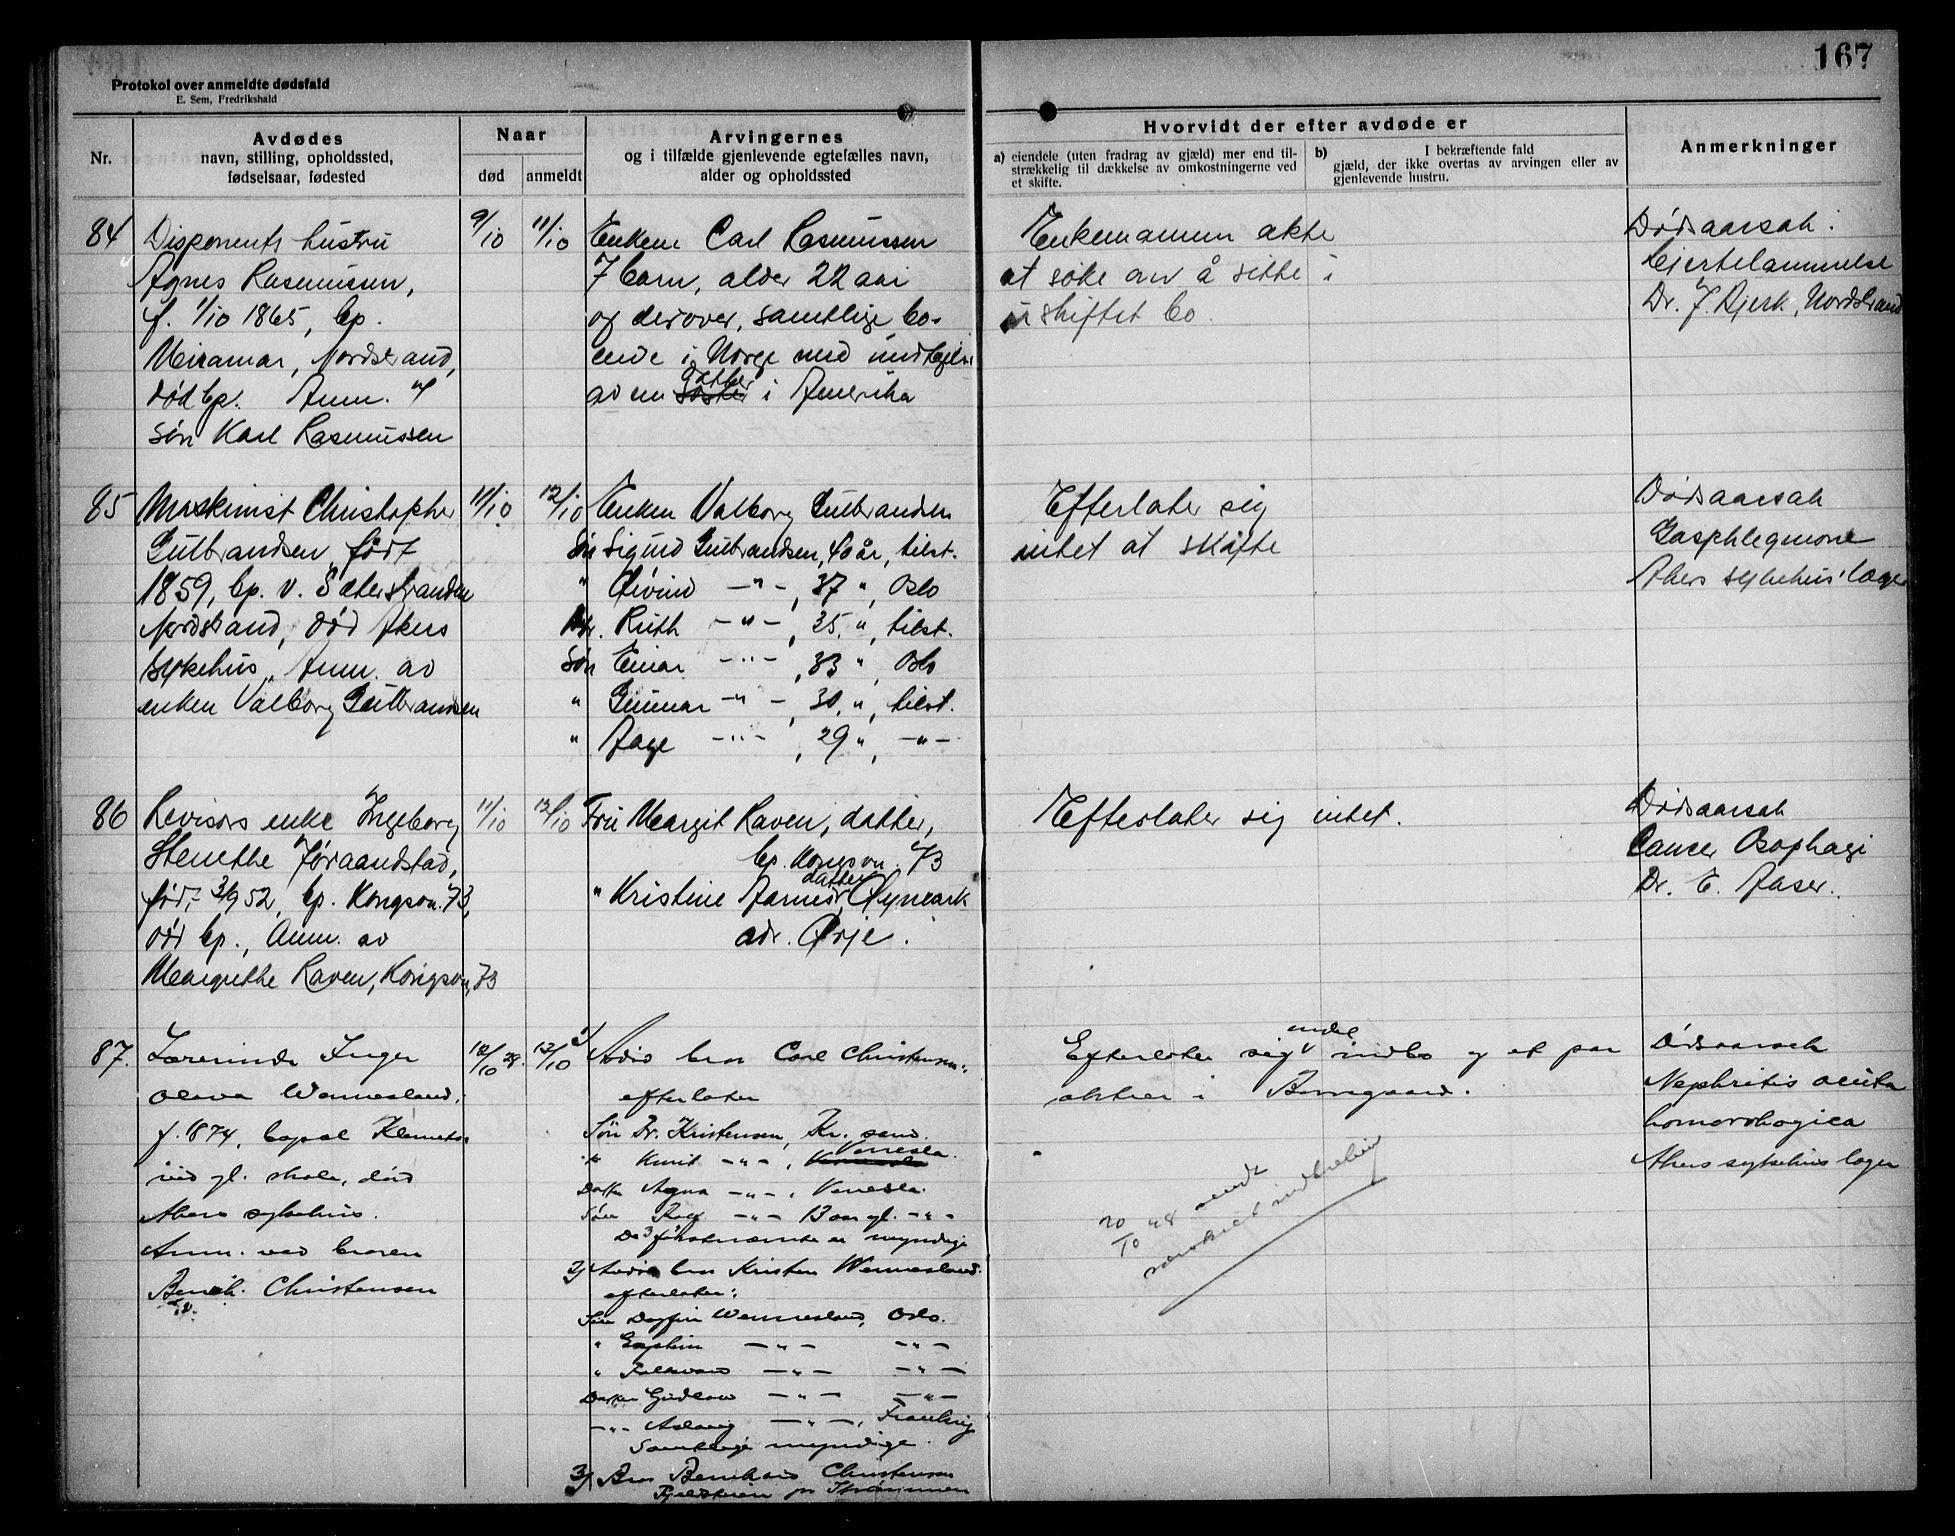 167
Protokol over anmeldte dødsfald
E. Sem, Fredrikshald
Nr.
Avdødes
navn, stilling, opholdssted,
fødselsaar, fødested
Naar
død
anmeldt
Arvingernes
og i tilfælde gjenlevende egtefælles navn,
alder og opholdssted
Hvorvidt der efter avdøde er
a) eiendele (uten fradrag av gjæld) mer end til-
strækkelig til dækkelse av omkostningerne ved
et skifte.
b) I bekræftende fald
gjæld, der ikke overtas av arvingen eller av
gjenlevende hustru.
Anmerkninger
84
Disponents hustru
Agnes Rasmussen,
f. 1/10 1865, bp.
Miramar, Nordstrand,
død bp. Anm. af
søn Karl Rasmussen
9/10
11/10
Enkem. Carl Rasmussen
7 barn, alder 22 aar
og derover, samtlige bo-
ende i Norge med undtagelse
av en søster datter i Amerika
Enkemannen akter
at søke om å sitte i
uskiftet bo.
Dødsaarsak:
Hjertelammelse
Dr. J. Bjerk, Nordstrand
85
Maskinist Christopher
Gulbrandsen, født
1859, bp. v. Sæterstranden
Nordstrand, død Akers
sykehus, Anm. av
enken Valborg Gulbrandsen
11/10
12/10
Enken Valborg Gulbrandsen
Søn Sigurd Gulbrandsen, 40 år, tilst.
" Øivind — " —, 37 ", Oslo
Dtr. Ruth — " —, 35 ", tilst.
Søn Einar — " —, 33 ", Oslo
" Gunnar — " —, 30 ", tilst.
" Aage — " —, 29 ", — " —
Efterlater sig
intet at skifte
Dødsaarsak
Gasphlegmone
Akers sykehus' læger
86
Revisors enke Ingeborg
Stenethe Jøraandstad,
født 3/9 52, bp. Kongsv. 73,
død bp., Anm. av
Margrethe Raven, Kongsv. 73
11/10
12/10
Fru Margit Raven, datter,
bp. Kongsv. 73
" Kristine Aarnes, datter Øymark
adr. Ørje.
Efterlater sig intet.
Dødsaarsak
Cancer Øsophagi
Dr. E. Aaser.
87.
Lærerinde Inger
Olava Wennesland,
f. 1874, bopæl Klemets-
rud gl. skole, død
Akers sykehus.
Anm. ved broren
Bernh. Christensen
12/10 28.
13/10
1/ Avdød bror Carl Christensen:
efterlater
Søn Dr. Kristensen, Kr. sand.
" Knut — " —, Vennesla.
Datter Agna — " —, Vennesla.
Søn Rolf — " — 13 aar gl. — " —
De 3 førstnævnte er myndige
2/ Avdød bror Kristen Wennesland
efterlater:
Søn Dagfin Wennesland, Oslo.
" — " — — " —
" Folkvard — " — — " —
Datter Gudlaug — " — — " —
— " — Aslaug — " —,
Samtlige myndige.
3/ Bror Bernhard Christensen
Efterlater sig endel indbo og et par
aktier i Bomgaard.
20/10 28 sendt
Dødsaarsak
Nephritis acuta
homorrhagica
Akers sykehus læger